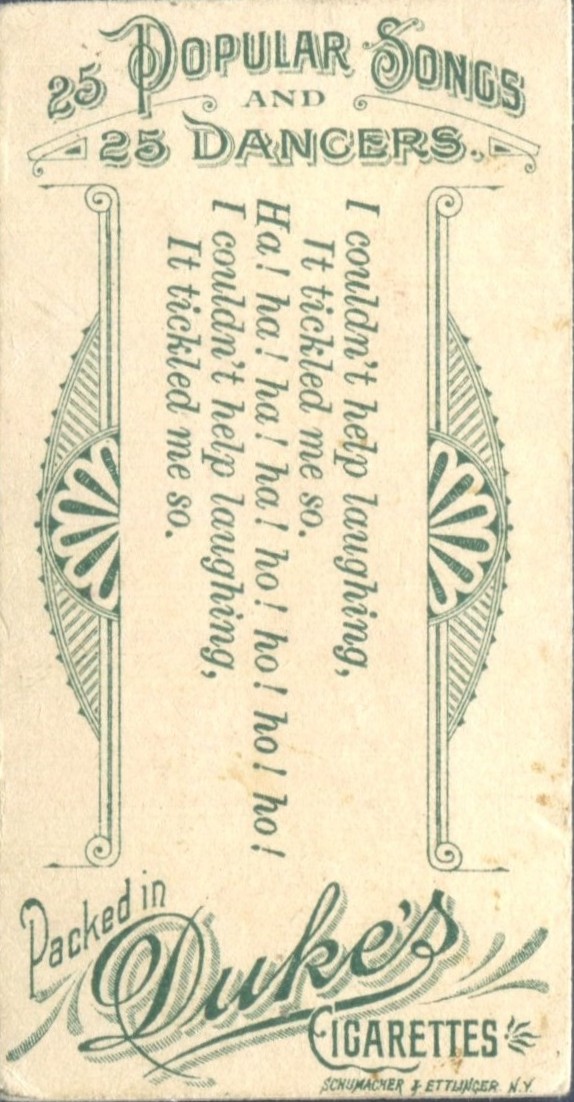 25 POPULAR SONGS
AND
25 DANCERS.
I couldn't help laughing,
It tickled me so.
Ha! ha! ha! ha! ho! ho! ho! ho!
I couldn't help laughing,
It tickled me so.
Packed in
Duke's
CIGARETTES
SCHUMACHER & ETTLINGER N.Y.